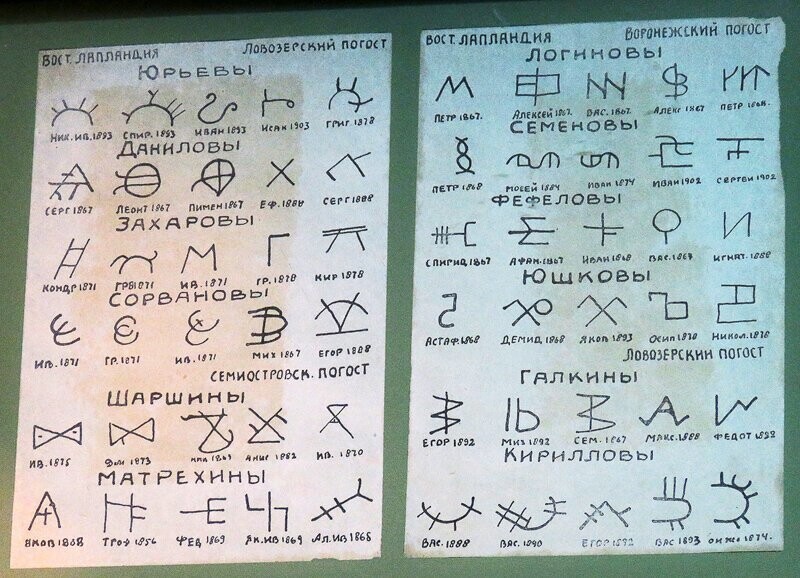 ВОСТ. ЛАПЛАНДИЯ ЛОВОЗЕРСКИЙ ПОГОСТ
ЮРЬЕВЫ
НИК. ИВ. 1893 СПИР. 1893 ИВАН 1893 ИСАК 1903 ГРИГ 1878
ДАНИЛОВЫ
СЕРГ 1867 ЛЕОНТ 1867 ПИМЕН 1867 ЕФ. 1888 СЕРГ 1888
ЗАХАРОВЫ
КОНДР 1871 ГРВ 1871 ИВ. 1871 ГР. 1878 КИР 1878
СОРВАНОВЫ
ИВ. 1871 ГР. 1871 ИВ. 1871 МИХ 1867 ЕГОР 1888
СЕМИОСТРОВСК. ПОГОСТ
ШАРШИНЫ
ИВ. 1875 1873 1882 ИВ. 1870
МАТРЕХИНЫ
ЯКОВ 1868 ТРОФ 1856 ФЕД 1869 ЯК. ИВ 1869 АЛ. ИВ 1868
ВОСТ. ЛАПЛАНДИЯ ВОРОНЕЖСКИЙ ПОГОСТ
ЛОГИНОВЫ
ПЕТР 1867. АЛЕКСЕЙ 1867. ВАС. 1867. АЛЕКС 1867 ПЕТР 1868.
СЕМЕНОВЫ
ПЕТР 1868 МОСЕЙ 1884 ИВАН 1874 ИВАН 1902 СЕРГЕИ 1902
ФЕФЕЛОВЫ
СПИРИД. 1867 АФАН. 1867 ИВАН 1868 ВАС. 1867 ИГНАТ. 1888
ЮШКОВЫ
АСТАФ. 1868 ДЕМИД 1868 ЯКОВ 1893 ОСИП 1870 НИКОЛ. 1878
ЛОВОЗЕРСКИЙ ПОГОСТ
ГАЛКИНЫ
ЕГОР 1892 МИХ 1892 СЕМ. 1867 МАКС. 1888 ФЕДОТ 1892
КИРИЛЛОВЫ
ВАС. 1888 ВАС. 1890 ЕГОР 1892 ВАС 1893 1874.